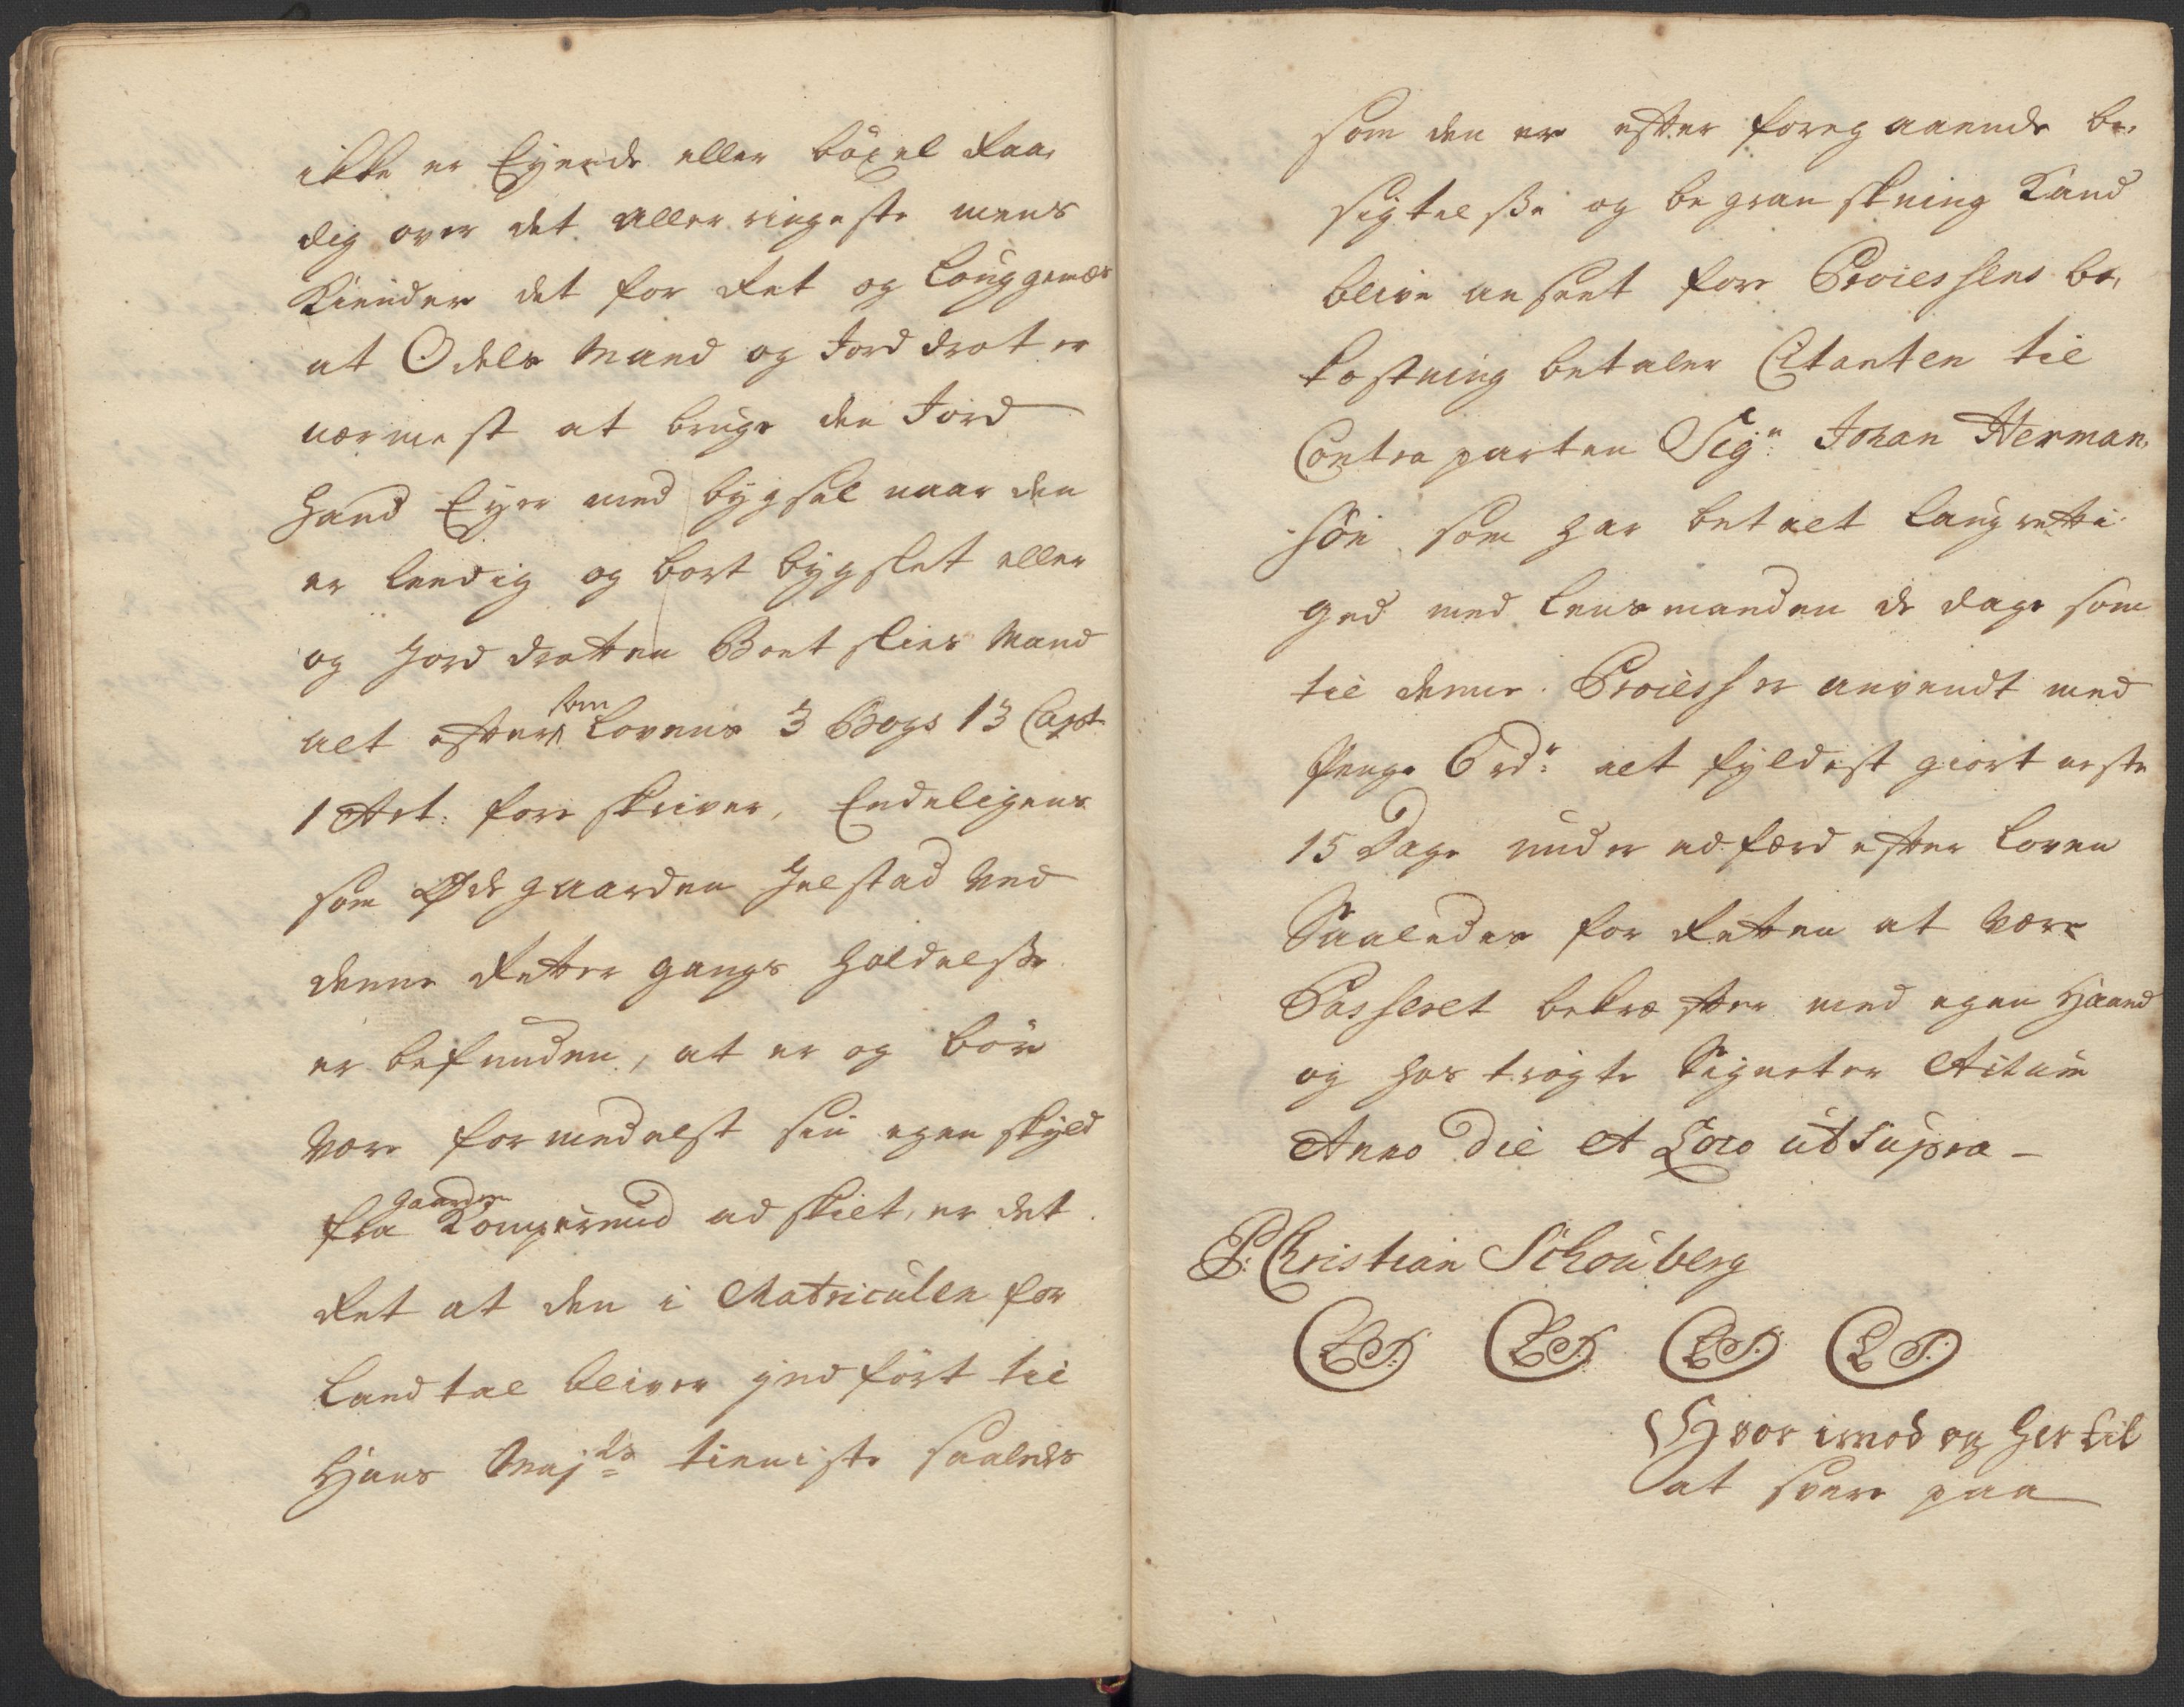 ikke er Eyende eller böxel Raa,
dig over det aller ringeste mens
Kiender det for Ret og Louggemæs
at Odels Mand og Jorddrot er
nærmest at bruge den Jord
hand Eyer med bygsel naar den
er leedig og bort bygslet eller
og Jord drotten Boet slies Mand
alt efter som Lovens 3 Bogs 13 Capt
1 Art. fore skriver, Endeligens
som Øde gaarden Jelstad ved
denne Retter gangs holdelsse
er befunden, at er og bör
være formedelst sin egen skyld
fra Gaarden Kompærud ad skilt, er det
Ret at den i Matriculen for
Landtal bliver jndfört til
Hans Maj:ts tienniste saaledes
som den er efter foregaaende be,
sigtelsse og begranskning Kand
blive anseet fore Processens be,
kostning betaler Citanten til
Contraparten Sigr. Johan Herman,
sön som har betalt Laugretti
ged med Lensmanden de dage som
til denne Process er anvendt med
Penge 6 rdr: alt fyldist giort neste
15 Dage under adfærd efter Loven
Saaledes for Retten at være
Passeret bekræfter med egen Haand
og hos trögte Signeter Actum
Anno Die et Loco ut supra –
P: Christian Schouberg
LS. LS. LS. LS.
Hvor imod og her til
at svare paa